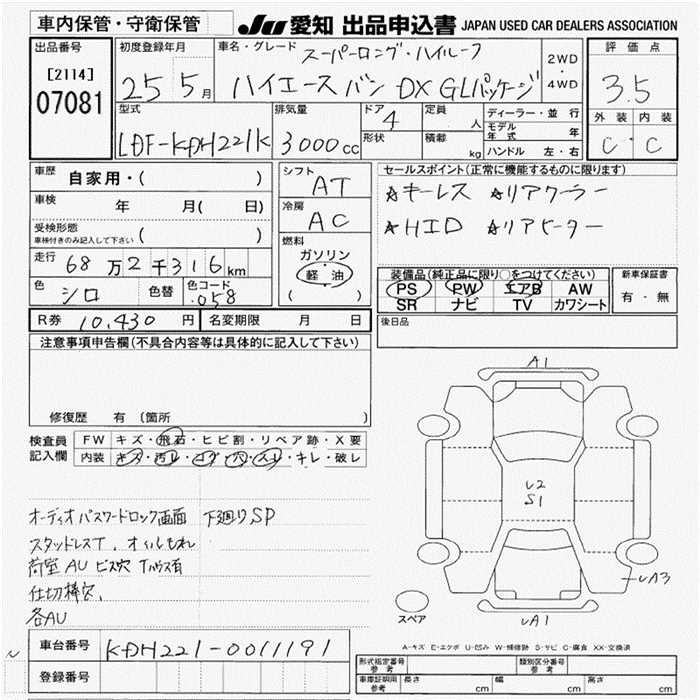 車内保管・守衛保管 JU 愛知 出品申込書 JAPAN USED CAR DEALERS ASSOCIATION
出品番号 初度登録年月 車名・グレード スーパーロング・ハイルーフ 評価点
[2114] 25 5月 ハイエースバン DX GLパッケージ 2WD・4WD 3.5
07081
型式 排気量 ドア 4 定員 人 ディーラー・並行 外装 内装
LDF-KDH221K 3000cc 形状 積載 kg モデル年式 年 C・C
ハンドル 左・右
車歴 自家用・( ) シフト AT セールスポイント(正常に機能するものに限ります)
車検 年 月( 日) 冷房 AC ☆キーレス ☆リアクーラー
受検形態 車検付きのみ記入して下さい ( ) ☆HID ☆リアヒーター
燃料 ガソリン
走行 68万2千316km 軽油
( )
装備品(純正品に限り○をつけてください) 新車保証書
色 シロ 色替 色コード 058 PS PW エアB AW 有・無
SR ナビ TV カワシート
R券 10,430円 名変期限 月 日 後日品
注意事項申告欄(不具合内容等は具体的に記入して下さい)
修復歴 有 (箇所 )
検査員記入欄 FW キズ・飛石・ヒビ割・リペア跡・X要
内装 キズ・汚レ・コゲ・穴・スレ・キレ・破レ
オーディオパスワードロック画面 下廻りSP
スタッドレスT、オイルもれ
荷室AU ビス穴 Tハウス有
仕切棒穴、
各AU
A1
U2
S1
UA3
UA1
スペア
A-キズ E-エクボ U-凹み W-補修跡 S-サビ C-腐食 XX-交換済
車台番号 KDH221-0011191
登録番号
形式指定番号 参考 類別区分番号 参考
車庫証明用 参考 長さ cm 幅 cm 高さ cm